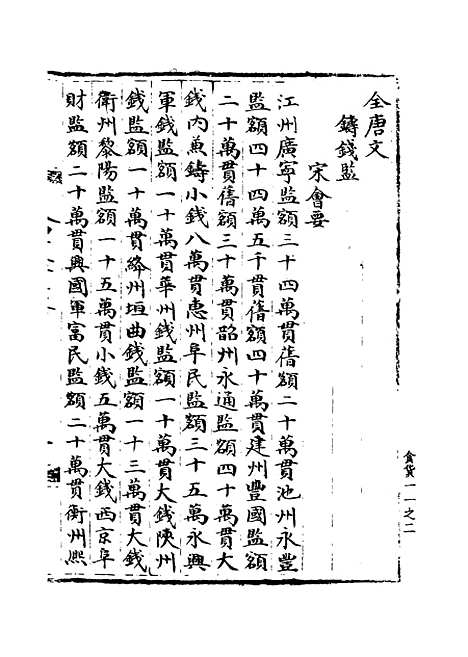 全唐文
鑄錢監
宋會要
江州廣寧監額三十四萬貫舊額二十萬貫池州永豐
監額四十四萬五千貫舊額四十萬貫建州豐國監額
二十萬貫舊額三十萬貫韶州永通監額四十萬貫大
錢內兼鑄小錢八萬貫惠州阜民監額三十五萬永興
軍錢監額一十萬貫華州錢監額一十萬貫大錢陝州
錢監額一十萬貫絳州垣曲錢監額一十三萬貫大錢
衛州黎陽監額一十五萬貫小錢五萬貫大錢西京阜
財監額二十萬貫興國軍富民監額二十萬貫衡州熙
食貨一一之二